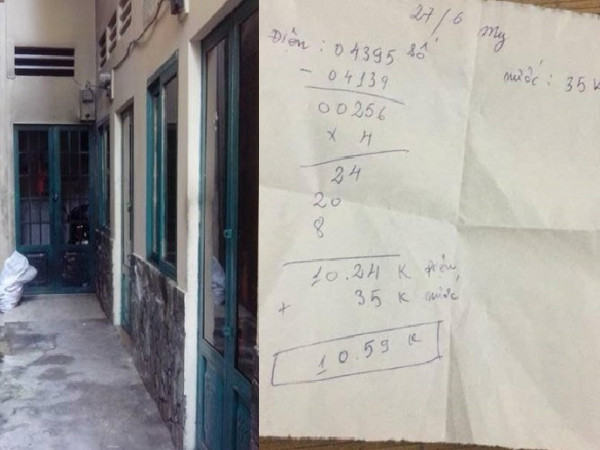 27/6 My
Điện : 04395 số
nước : 35 K
- 04139
00256
x 4
24
20
8
10.24 K điện
+ 35 K nước
10.59 K